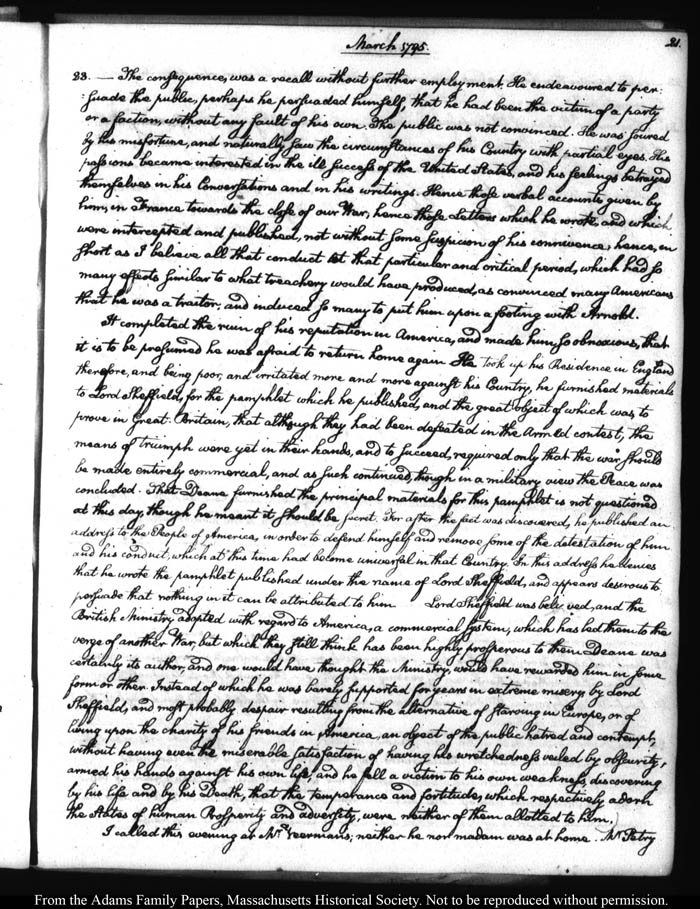 March 1795.
21.
23. — The consequence, was a recall without further employment. He endeavoured to per-
:suade the public, perhaps he persuaded himself, that he had been the victim of a party
or a faction, without any fault of his own. The public was not convinced. He was soured
by his misfortune, and naturally saw the circumstances of his Country with partial eyes. His
passions became interested in the ill success of the United States, and his feelings betrayed
themselves in his Conversations and in his writings. Hence those verbal accounts given by
him, in France towards the close of our War; hence those Letters which he wrote, and which
were intercepted and published, not without some suspicion of his connivance; hence, in
short as I believe all that conduct at that particular and critical period, which had so
many effects similar to what treachery would have produced, as convinced many Americans
that he was a traitor, and induced so many to put him upon a footing with Arnold.
It completed the ruin of his reputation in America, and made him so obnoxious, that
it is to be presumed he was afraid to return home again. He took up his Residence in England
therefore, and being poor, and irritated more and more against his Country, he furnished materials
to Lord Sheffield, for the pamphlet which he published, and the great object of which was to
prove in Great Britain, that although they had been defeated in the armed contest, the
means of triumph were yet in their hands, and to succeed, required only that the war should
be made entirely commercial, and as such continued, though in a military view the Peace was
concluded. That Deane furnished the principal materials for this pamphlet is not questioned
at this day, though he meant it should be secret. For after the fact was discovered, he published an
address to the People of America, in order to defend himself and remove some of the detestation of him
and his conduct, which at this time had become universal in that Country. In this address he denies
that he wrote the pamphlet published under the name of Lord Sheffield, and appears desirous to
persuade that nothing in it can be attributed to him Lord Sheffield was believed, and the
British Ministry adopted with regard to America, a commercial system, which has led them to the
verge of another War, but which they still think has been highly prosperous to them. Deane was
certainly its author, and one would have thought the Ministry, would have rewarded him in some
form or other. Instead of which he was barely supported for years in extreme misery by Lord
Sheffield, and most probably despair resulting from the alternative of starving in Europe, or of
living upon the charity of his friends in America, an object of the public hatred and contempt,
without having even the miserable satisfaction of having his wretchedness veiled by obscurity,
armed his hands against his own life, and he fell a victim to his own weakness, discovering
by his life and by his Death, that the temperance and fortitude, which respectively adorn
the States of human Prosperity and adversity, were neither of them allotted to him.)
I called this evening at Mr. Veermans; neither he nor madam was at home. Mr. Petry
From the Adams Family Papers, Massachusetts Historical Society. Not to be reproduced without permission.